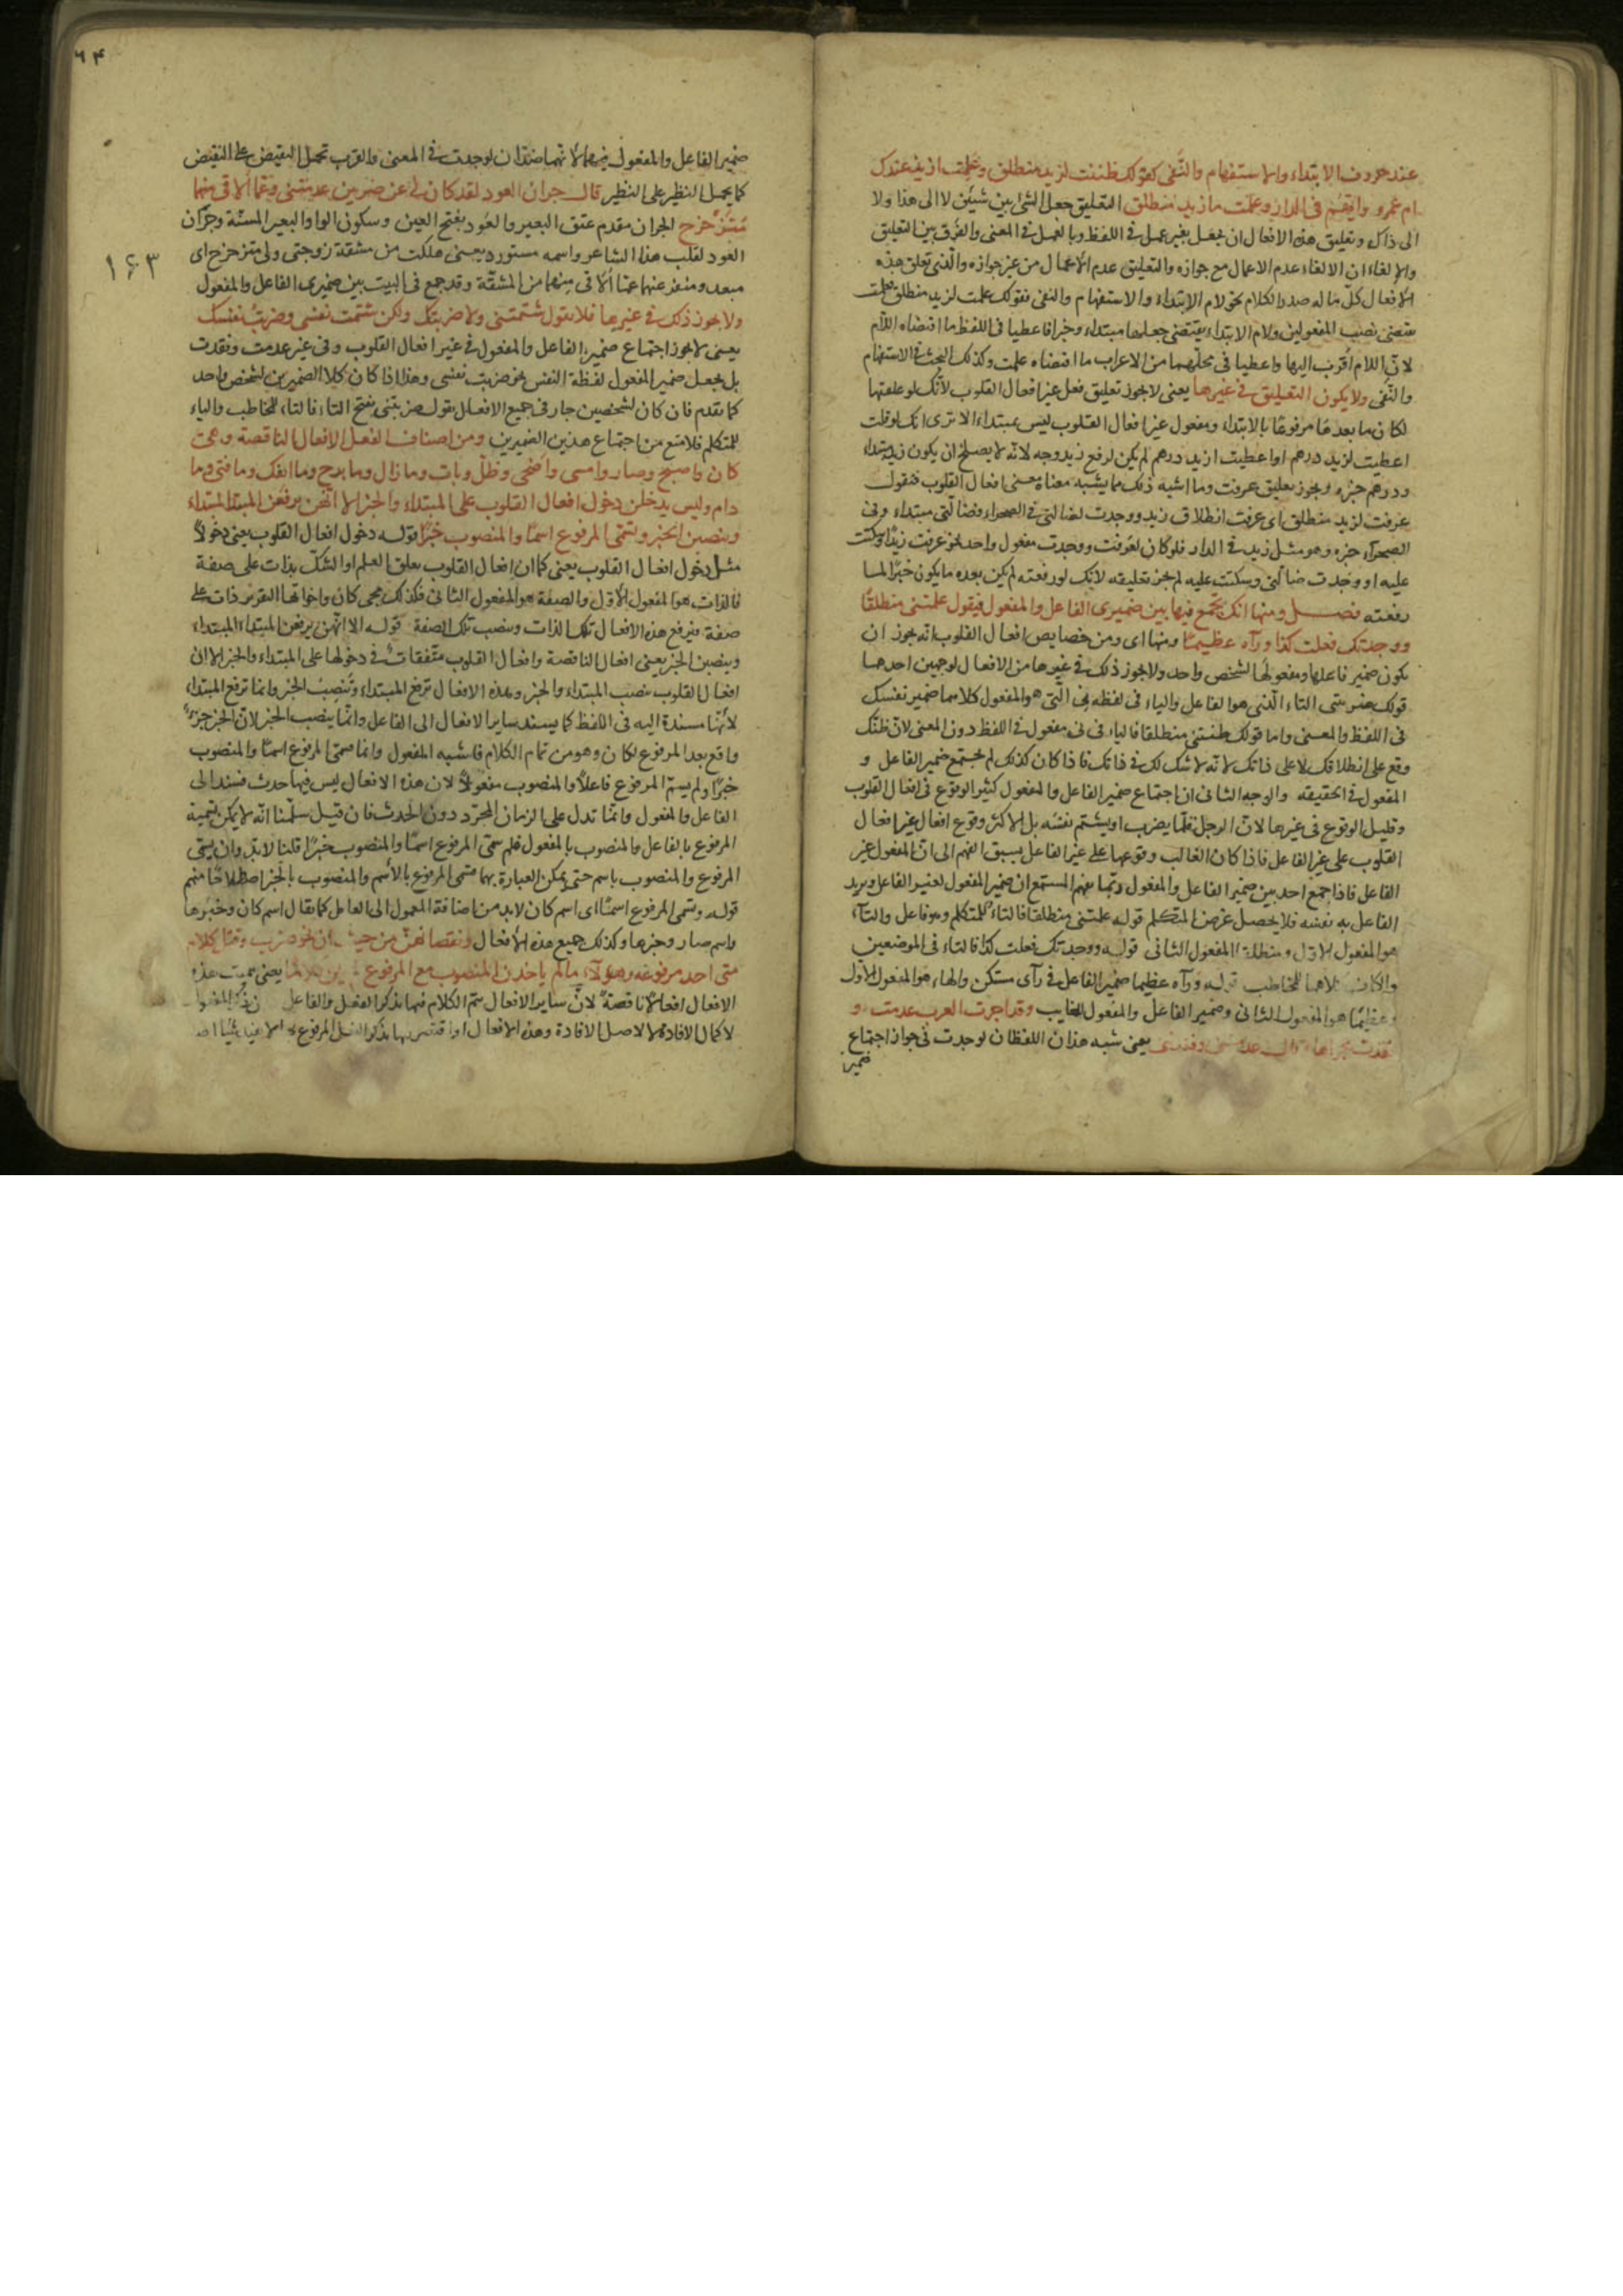 عند حروف الابتداء والاستفهام والنفى كقولك ظننت لزيد منطلق وعلمت ازيد عندك
ام عمرو وايهم فى الدار وعلمت ما زيد منطلق التعليق جعل الشئ بين شيئين لا الى هذا ولا
الى ذاك وتعليق هذه الافعال ان يجعل بغير عمل فى اللفظ وبالعمل فى المعنى والفرق بين التعليق
والالغاء ان الالغاء عدم الاعمال مع جوازه والتعليق عدم الاعمال من غير جوازه والذى تعلق هذه
الافعال كل ما له صدر الكلام نحو لام الابتداء والاستفهام والنفى فقولك علمت لزيد منطلق علمت
يقتضى نصب المفعولين ولام الابتداء يقتضى جعلهما مبتداء وخبرا فاعطيا فى اللفظ ما اقتضاه اللام
لان اللام اقرب اليها واعطيا فى محلهما من الاعراب ما اقتضاه علمت وكذلك البحث فى الاستفهام
والنفى ولا يكون التعليق فى غيرها يعنى لا يجوز تعليق فعل غير افعال القلوب لانك لو علقتها
لكان ما بعدها مرفوعا بالابتداء ومفعول غير افعال القلوب ليس بمبتداء الا ترى انك لو قلت
اعطيت لزيد درهم او اعطيت ازيد درهم لم يكن لرفع زيد وجه لانه لا يصلح ان يكون زيد مبتداء
ودرهم خبره ويجوز تعليق عرفت وما اشبه ذلك مما يشبه معناه معنى افعال القلوب فتقول
عرفت لزيد منطلق اى عرفت انطلاق زيد ووجدت لضالتى فى الصحراء فضالتى مبتداء وفى
الصحراء خبره وهو مثل زيد فى الدار فلو كان لعرفت ووجدت مفعول واحد نحو عرفت زيدا وسكتت
عليه او وجدت ضالتى وسكتت عليه لم يجز تعليقه لانك لو رفعته لم يكن بعده ما يكون خبرا لما
رفعته فصل ومنها انك تجمع فيها بين ضميرى الفاعل والمفعول فيقول علمتنى منطلقا
ووجدتك فعلت كذا ورآه عظيما ومنها اى ومن خصايص افعال القلوب انه يجوز ان
يكون ضمير فاعلها ومفعولها لشخص واحد ولا يجوز ذلك فى غيرها من الافعال لوجهين احدهما
قولك ضربتنى التاء الذى هو الفاعل والياء فى لفظه نى التى هو المفعول كلاهما ضمير نفسك
فى اللفظ والمعنى واما قولك ظننتنى منطلقا فالياء فى نى مفعول فى اللفظ دون المعنى لان ظنك
وقع على انطلاقك لا على ذاتك لانه لا شك لك فى ذاتك فاذا كان كذلك لم يجتمع ضمير الفاعل و
المفعول فى الحقيقه والوجه الثانى ان اجتماع ضمير الفاعل والمفعول كثير الوقوع فى افعال القلوب
وقليل الوقوع فى غيرها لان الرجل قلما يضرب او يشتم نفسه بل الاكثر وقوع افعال غير افعال
القلوب على غير الفاعل فاذا كان الغالب وقوعها على غير الفاعل يسبق الفهم الى ان المفعول غير
الفاعل فاذا جمع احد بين ضمير الفاعل والمفعول ربما يفهم المستمع ان ضمير المفعول لغير الفاعل ويريد
الفاعل به نفسه فلا يحصل غرض المتكلم قوله علمتنى منطلقا فالتاء للمتكلم وهو فاعل والتاء
هو المفعول الاول ومنطلقا المفعول الثانى قوله ووجدتك فعلت كذا فالتاء فى الموضعين
والكاف كلاهما للمخاطب قوله ورآه عظيما ضمير الفاعل فى رآى مستكن والهاء هو المفعول الاول
وعظيما هو المفعول الثانى وضمير الفاعل والمفعول للغايب وقد اجرت العرب عدمت و
فقدت مجراها قال عدمتنى وفقدتنى يعنى شبه هذان اللفظان لوجدت فى جواز اجتماع
ضمير
٦٤
ضمير الفاعل والمفعول فيهما لانهما ضدان لوجدت فى المعنى والعرب تحمل النقيض على النقيض
كما يحمل النظير على النظير قال جران العود لقد كان لى عن ضرتين عدمتنى وعما الاقى منهما
متزحزح الجران مقدم عنق البعير والعود بفتح العين وسكون الواو البعير المسنة وجران
العود لقب هذا الشاعر واسمه مستورد يعنى هلكت من مشقة زوجتى ولى متزحزح اى
١٤٣
مبعد ومنفذ عنهما عما ألاقى منهما من المشقة وقد جمع فى البيت بين ضميرى الفاعل والمفعول
ولا يجوز ذلك فى غيرها فلا يقول شتمتنى ولا ضربتك ولكن شتمت نفسى وضربت نفسك
يعنى لا يجوز اجتماع ضمير الفاعل والمفعول فى غير افعال القلوب وفى غير عدمت وفقدت
بل يجعل ضمير المفعول لفظة النفس نحو ضربت نفسى وهذا اذا كان كلا الضميرين لشخص واحد
كما تقدم فان كان لشخصين جاز فى جميع الافعال يقول ضربتنى بفتح التاء فالتاء للمخاطب والياء
للمتكلم فلا منع من اجتماع هذين الضميرين ومن اصناف الفعل الافعال الناقصة وهى
كان واصبح وصار وامسى واضحى وظل وبات وما زال وما برح وما انفك وما فتئ وما
دام وليس يدخلن دخول افعال القلوب على المبتداء والخبر الا انهن يرفعن المبتدا المبتداء
وينصبن الخبر ويسمى المرفوع اسما والمنصوب خبرا قوله دخول افعال القلوب يعنى دخولا
مثل دخول افعال القلوب يعنى كما ان افعال القلوب يعلق العلم او الشك بذات على صفة
فالذات هو المفعول الاول والصفة هو المفعول الثانى فكذلك يجى كان واخواتها لتقرير ذات على
صفة فيرفع هذه الافعال تلك الذات وينصب تلك الصفة قوله الا انهن يرفعن المبتداء المبتداء
وينصبن الخبر يعنى افعال الناقصة وافعال القلوب متفقات فى دخولها على المبتداء والخبر الا ان
افعال القلوب ينصب المبتداء والخبر وهذه الافعال ترفع المبتداء وتنصب الخبر وانما ترفع المبتداء
لانها مسندة اليه فى اللفظ كما يسند ساير الافعال الى الفاعل وانما ينصب الخبر لان الخبر جزء
واقع بعد المرفوع لكان وهو من تمام الكلام فاشبه المفعول وانما سمى المرفوع اسما والمنصوب
خبرا ولم يسم المرفوع فاعلا والمنصوب مفعولا لان هذه الافعال ليس فيها حدث فسند الى
الفاعل والمفعول وانما تدل على الزمان المجرد دون الحدث فان قيل سلمنا انه لا يمكن تسمية
المرفوع بالفاعل والمنصوب بالمفعول فلم سمى المرفوع اسما والمنصوب خبرا قلنا لابد وان يسمى
المرفوع والمنصوب باسم حتى يمكن العبارة بهما فسمى المرفوع بالاسم والمنصوب بالخبر اصطلاحا منهم
قوله ويسمى المرفوع اسما اى اسم كان لابد من اضافة المعمول الى العامل كما يقال اسم كان وخبرها
واسم صار وخبرها وكذلك جميع هذه الافعال ونقصانهن من حيث ان نحو ضرب وقتل كلام
متى اخذ مرفوعه وهؤلاء ما لم ياخذن المنصوب مع المرفوع لم يكن كلاما يعنى سميت هذه
الافعال افعالا ناقصة لان ساير الافعال يتم الكلام فيها بذكر الفعل والفاعل
لا كمال الافادة لا لاصل الافادة وهذه الافعال لو اقتصر بها بذكر الفعل المرفوع لا يفيد شيئا